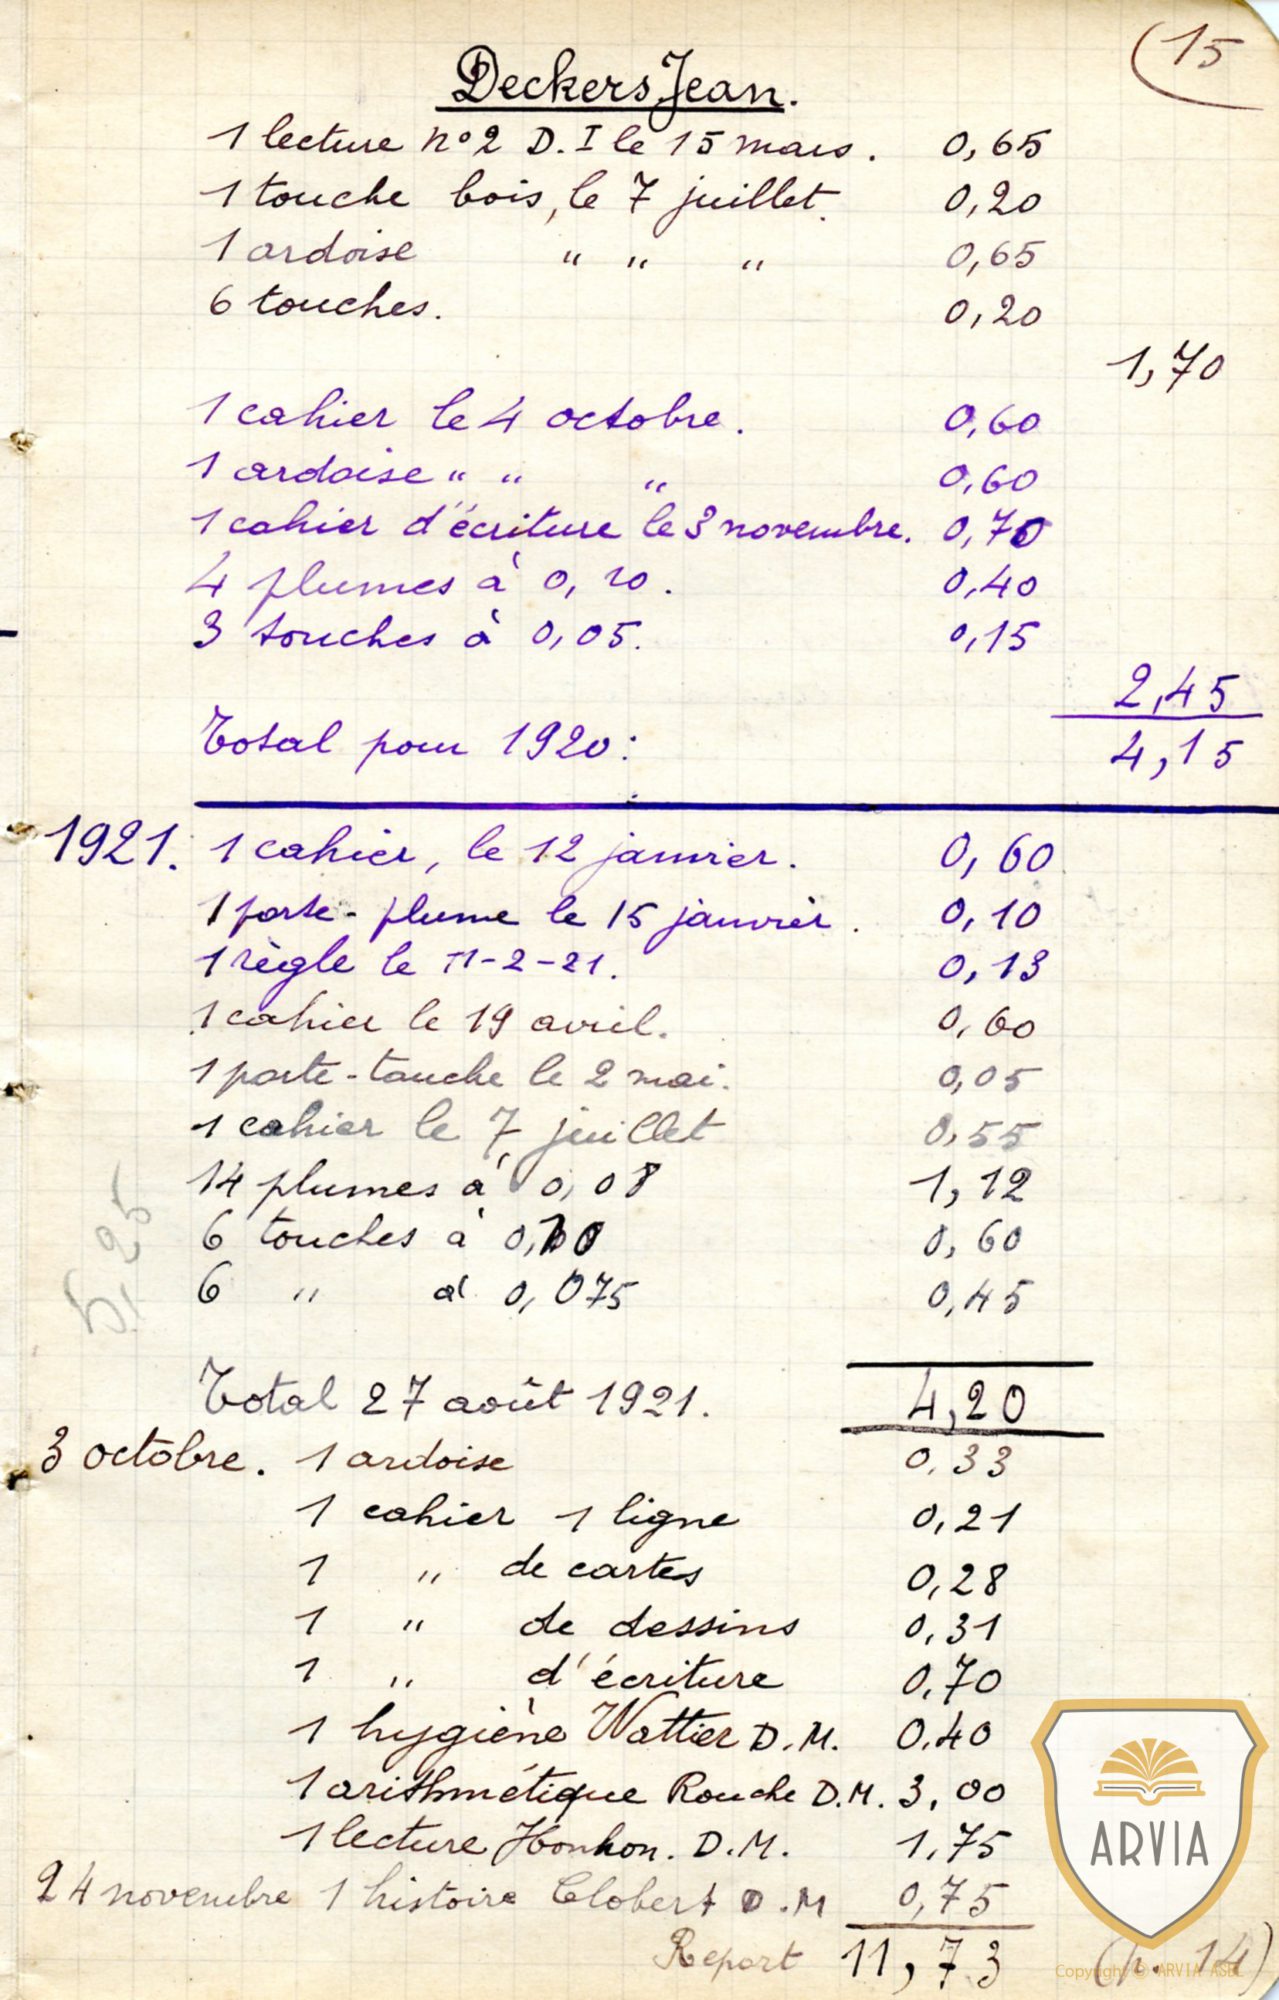 (15
Deckers Jean.
1 lecture n°2 D.I le 15 mars. 0,65
1 touche bois, le 7 juillet. 0,20
1 ardoise " " " 0,65
6 touches. 0,20
1,70
1 cahier le 4 octobre. 0,60
1 ardoise " " " 0,60
1 cahier d'écriture le 3 novembre. 0,70
4 plumes à 0,10. 0,40
3 touches à 0,05. 0,15
2,45
Total pour 1920: 4,15
1921. 1 cahier, le 12 janvier. 0,60
1 porte-plume le 15 janvier. 0,10
1 règle le 11-2-21. 0,13
1 cahier le 19 avril. 0,60
1 porte-touche le 2 mai. 0,05
1 cahier le 7 juillet 0,55
14 plumes à 0,08 1,12
6 touches à 0,10 0,60
6 " à 0,075 0,45
5,25
Total 27 août 1921. 4,20
3 octobre. 1 ardoise 0,33
1 cahier 1 ligne 0,21
1 " de cartes 0,28
1 " de dessins 0,31
1 " d'écriture 0,70
1 hygiène Wattier D.M. 0.40
1 arithmétique Rouche D.M. 3,00
1 lecture Honhon. D.M. 1,75
24 novembre 1 histoire Clobert D.M 0,75
Report 11,73 (p. 14)
ARVIA
Copyright © ARVIA ASBL